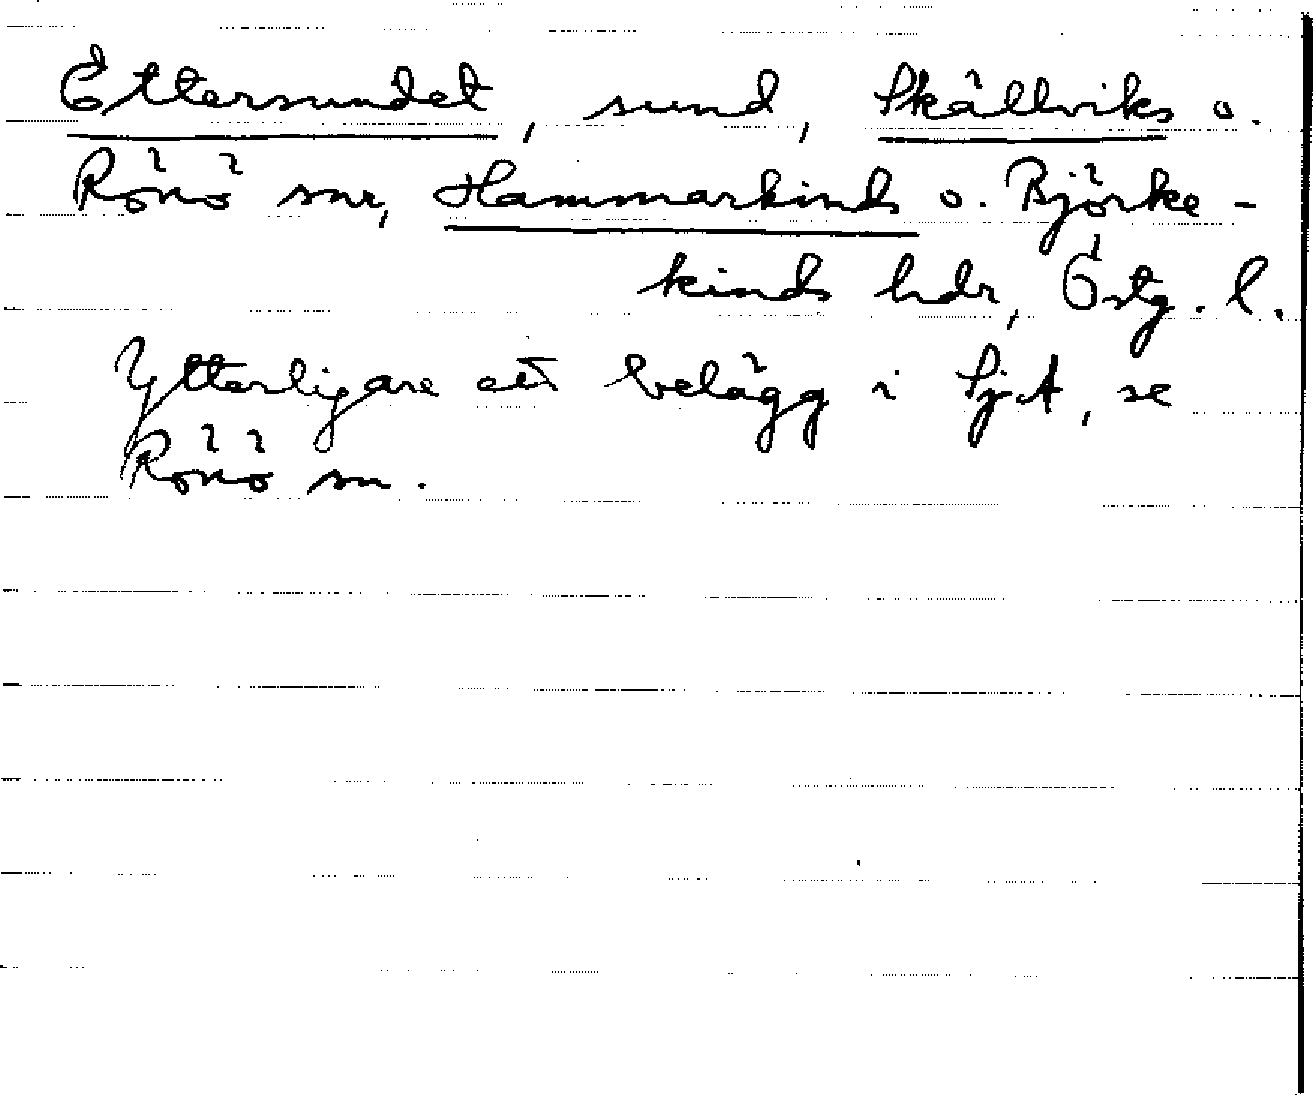 Ettersundet, sund, Skällviks o.
Rönö snr, Hammarkinds o. Björke-
kinds hdr, Östg. l.
Ytterligare ett belägg i SjA, se
Rönö sn.